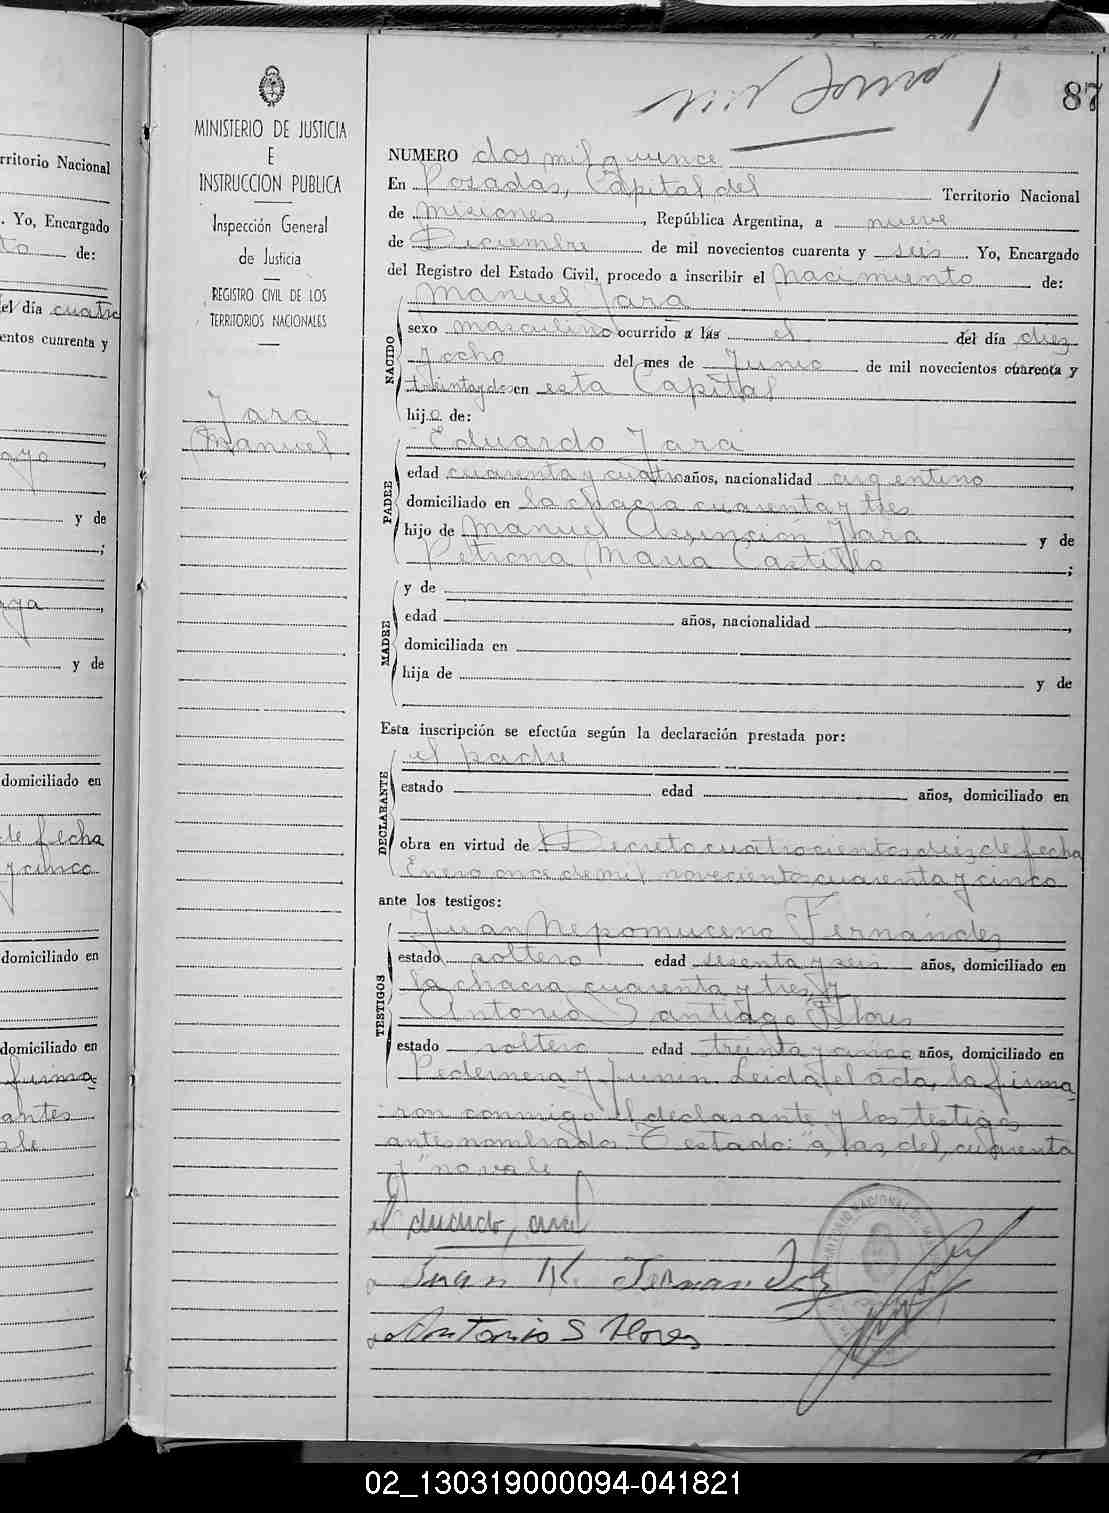 87
MINISTERIO DE JUSTICIA
E
INSTRUCCION PUBLICA
Inspección General
de Justicia
REGISTRO CIVIL DE LOS
TERRITORIOS NACIONALES
Jara
Manuel
NUMERO dos mil quince
En Posadas, Capital del Territorio Nacional
de Misiones, República Argentina, a nueve
de Diciembre de mil novecientos cuarenta y seis Yo, Encargado
del Registro del Estado Civil, procedo a inscribir el nacimiento de:
Manuel Jara
NACIDO
sexo masculino ocurrido a las el del día diez
y ocho del mes de Junio de mil novecientos cuarenta y
treinta y dos en esta Capital
hijo de:
Eduardo Jara
PADRE
edad cuarenta y cuatro años, nacionalidad argentino,
domiciliado en la chacra cuarenta y tres
hijo de Manuel Asuncion Jara y de
Petrona Maria Castillo;
MADRE
y de
edad años, nacionalidad,
domiciliada en
hija de y de
Esta inscripción se efectúa según la declaración prestada por:
el padre
DECLARANTE
estado edad años, domiciliado en
obra en virtud de Decreto cuatrocientos diez de fecha
Enero once de mil novecientos cuarenta y cinco
ante los testigos:
Juan Nepomuceno Fernández
TESTIGOS
estado soltero edad sesenta y seis años, domiciliado en
la chacra cuarenta y tres y
Antonio Santiago Flores
estado soltero edad treinta y cinco años, domiciliado en
Pedernera y Junin. Leida el acta, la firma-
ron conmigo el declarante y los testigos
antes nombrados. Testado: "a, las, del, cuarenta
y" no vale
Juan N. Fernandez
Antonio S Flores
rritorio Nacional
. Yo, Encargado
de:
el día cuatro
entos cuarenta y
y de
;
y de
domiciliado en
de fecha
y cinco
domiciliado en
domiciliado en
firma-
antes
02_130319000094-041821